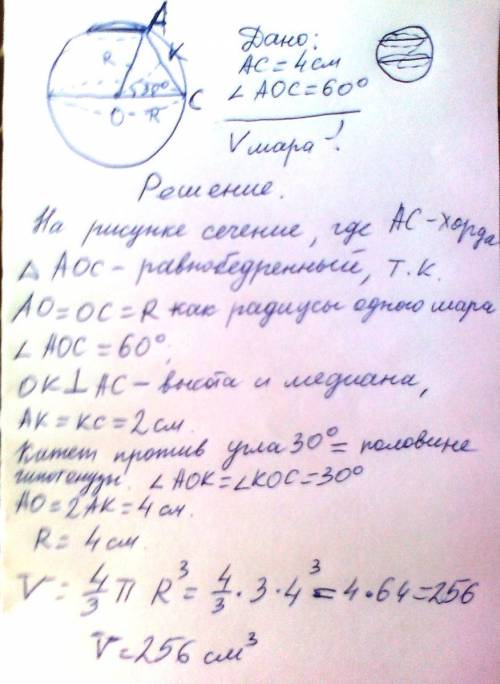 A
R
K
30°
O
R
C
Дано:
AC = 4 см
∠ AOC = 60°
V шара !
Решение.
На рисунке сечение, где AC – хорда
△ AOC – равнобедренный, т.к.
AO = OC = R как радиусы одного шара
∠ AOC = 60°,
OK ⊥ AC – высота и медиана,
AK = KC = 2 см.
Катет против угла 30° = половине
гипотенузы. ∠ AOK = ∠ KOC = 30°
AO = 2AK = 4 см.
R = 4 см.
V = 4/3 π R³ = 4/3 · 3 · 4³ = 4 · 64 = 256
V = 256 см³